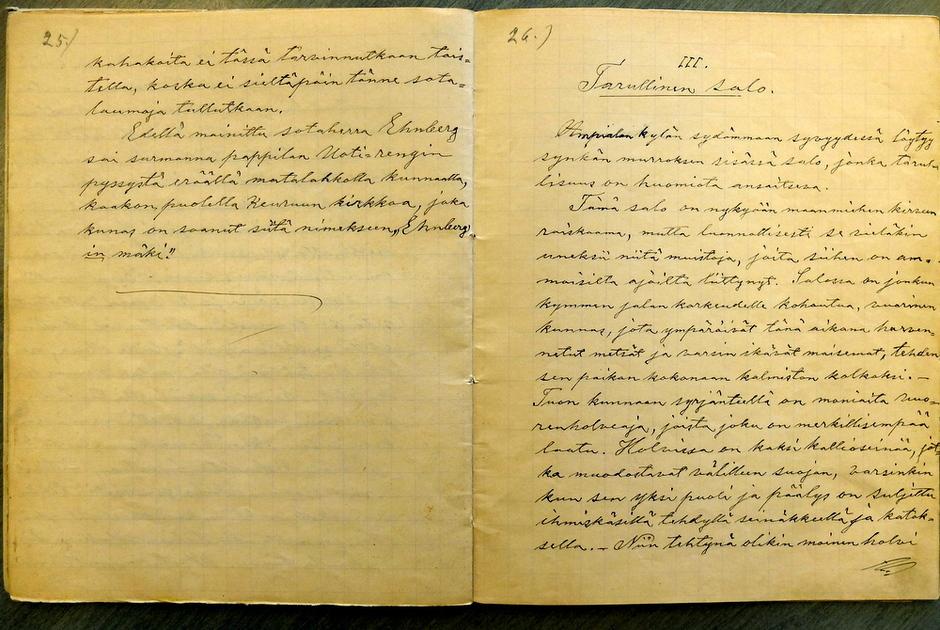 25.)
kahakoita ei tässä tarvinnutkaan tais=
tella, koska ei sieltäpäin tänne sota=
laumoja tullutkaan.
Edellä mainittu sotaherra Ehnberg
sai surmansa pappilan Uoti=rengin
pyssystä eräällä matalahkolla kunnaalla,
kaakon puolella Keuruun kirkkoa, joka
kunnas on saanut siitä nimekseen „Ehnberg
in mäki."
26.)
III.
Tarullinen salo.
Ampialan kylän sydänmaan syvyydessä löytyy
synkän murroksen sisässä salo, jonka tarul=
lisuus on huomiota ansaitseva.
Tämä salo on nykyään maanmiehen kirveen
raiskaama, mutta luonnollisesti se vieläkin
uneksii niitä muistoja, joita siihen on am=
moisilta ajoilta liittynyt. Salossa on jonkun
kymmen jalan korkeudelle kohoutuva, vuorinen
kunnas, jota ympäröivät tänä aikana harven=
netut metsät ja varsin ikävät maisemat, tehden
sen paikan kokonaan kalmiston kolkoksi. —
Tuon kunnaan syrjänteellä on moniaita vuo=
renholveja, joista joku on merkillisempää
laatua. Holvissa on kaksi kallioseinää, jot=
ka muodostavat välilleen suojan, varsinkin
kun sen yksi puoli ja päälys on suljettu
ihmiskäsillä tehdyllä seinäkkeellä ja katok=
sella. — Niin tehtynä olikin moinen holvi